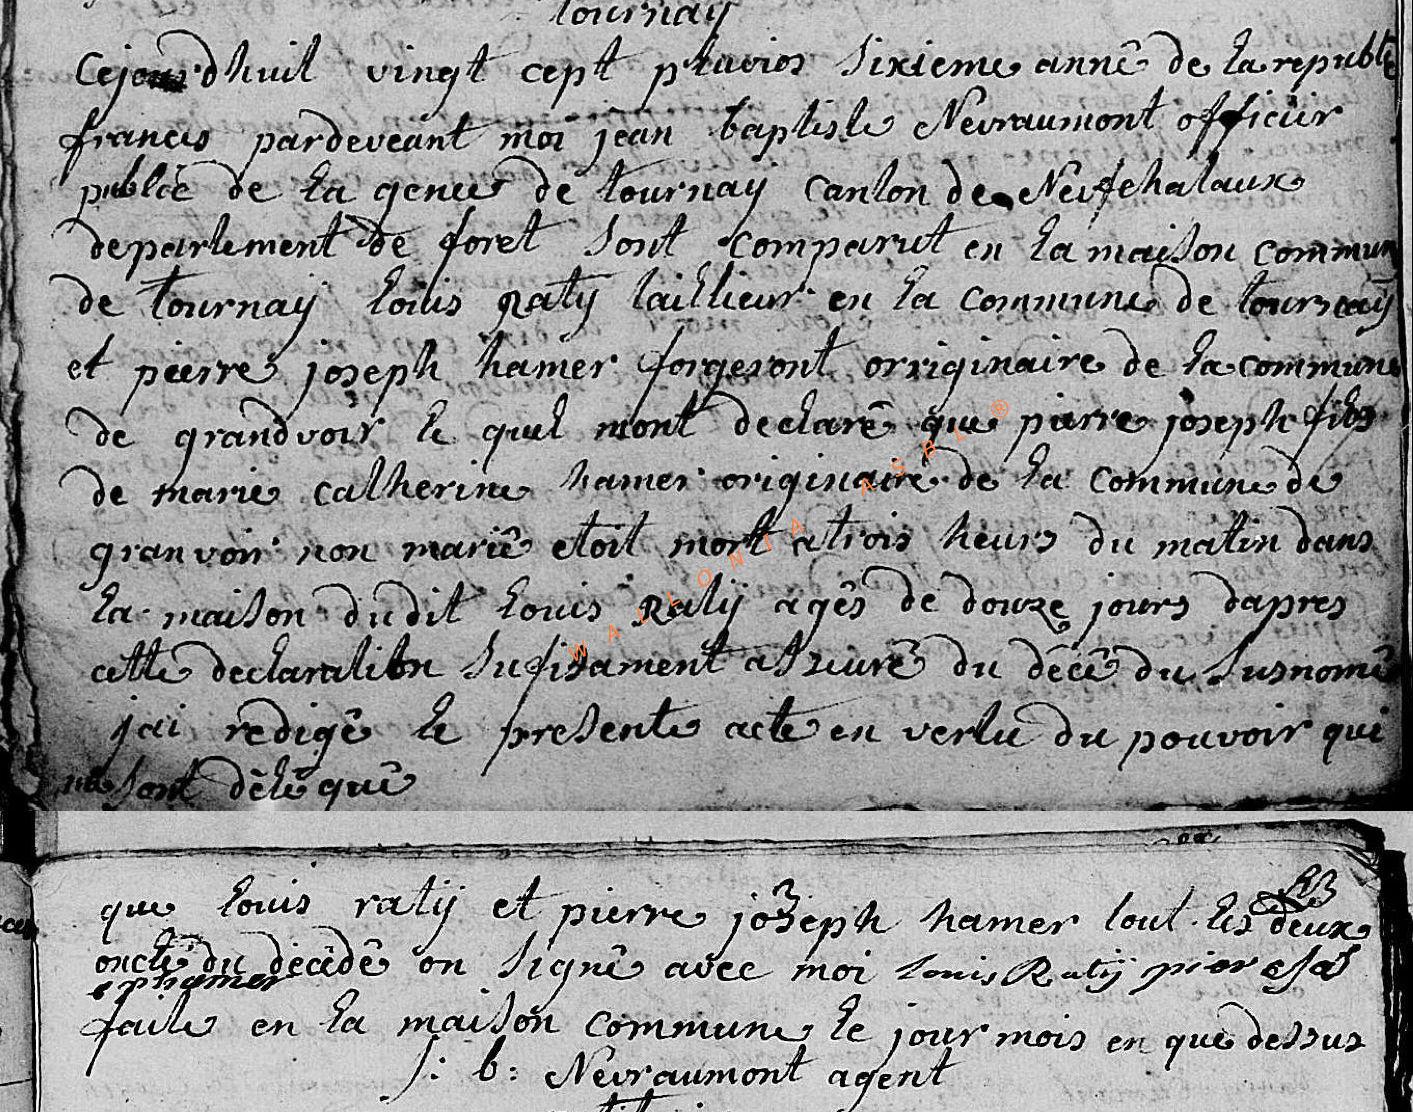 tournay
Cejourdhuil vingt cept pluvios sixieme annê de la republê
francis pardeveant moi jean baptiste Nevraumont officiir
publcè de la gence de tournaÿ canton de Neufchataux
departement de foret sont comparut en la maison commun
de tournaÿ loiiis Ratÿ taillieur en la commune de tournaÿ
et pierre joseph hamer forgeront orriginaire de la commune
de grandvoir le quel mont declarê que pierre joseph fils
de marie catherine hamer originaire de la commune de
granvoir non mariê etoit mort a trois heurs du matin dans
la maison dudit louis Ratÿ agês de douze jours dapres
cette declaration sufisament asseurê du dêcê du susnomê
jai redigê le presente acte en vertu du pouvoir qui
me sont dêlêquê
que louis ratÿ et pierre joseph hamer tout les deux
oncle du dêcêdê on signê avec moi Louis Ratÿ pier esas
ephamer
faite en la maison commune le jour mois en que dessus
J: b: Nevraumont agent
WALLONIA ASBL ®